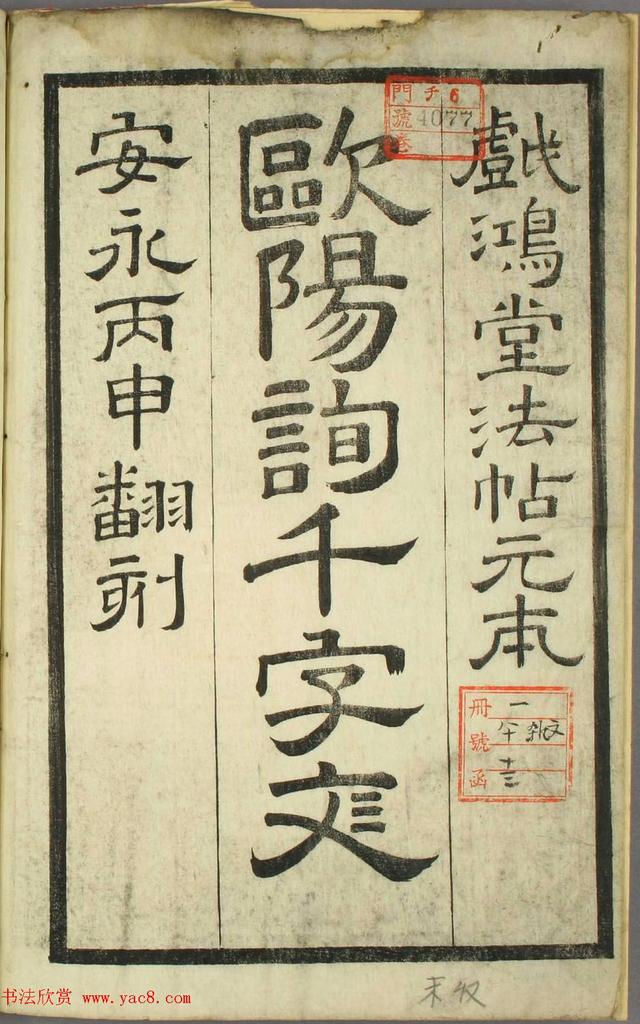 戲鴻堂法帖元本
歐陽詢千字文
安永丙申翻刻
門 チ 6
號 4077
卷
冊 一
號
函 十三
未收
书法欣赏 www.yac8.com